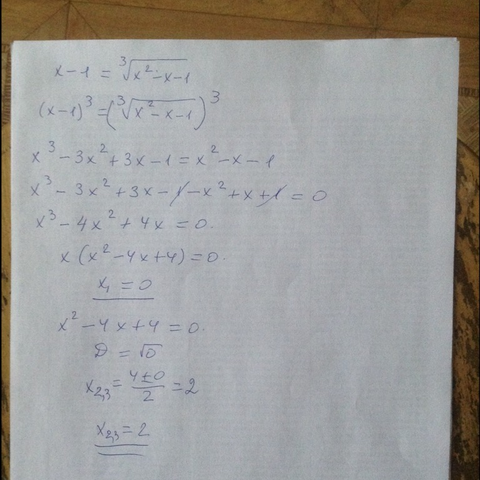 x-1 = ∛(x²-x-1)
(x-1)³ = (∛(x²-x-1))³
x³ - 3x² + 3x - 1 = x² - x - 1
x³ - 3x² + 3x - 1 - x² + x + 1 = 0
x³ - 4x² + 4x = 0.
x (x² - 4x + 4) = 0.
x₁ = 0
x² - 4x + 4 = 0.
D = √0
x₂,₃ = (4±0)/2 = 2
x₂,₃ = 2